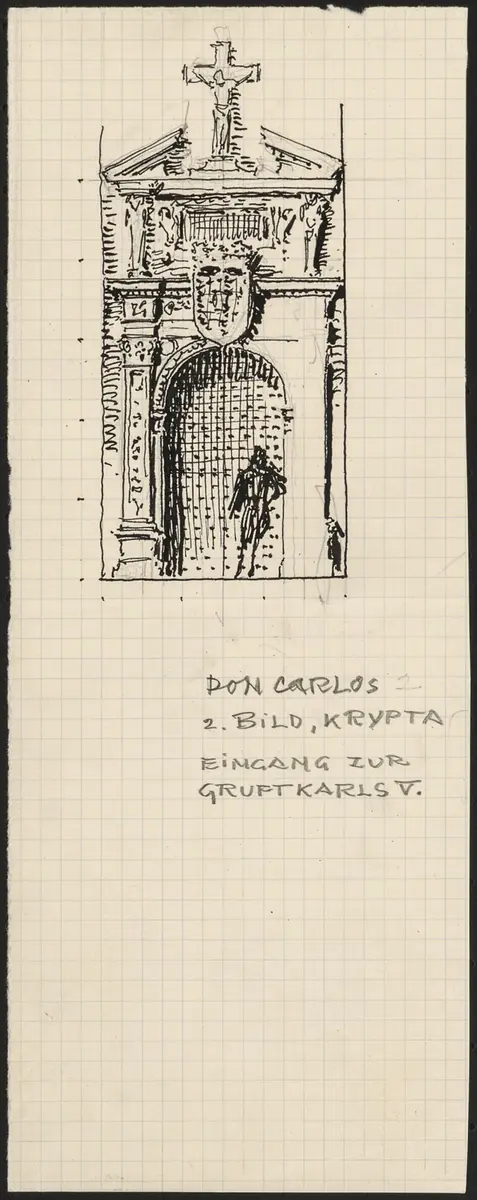 DON CARLOS 2
2. BiLD, KRYPTA
EiNGANG ZUR
GRUFT KARLS V.